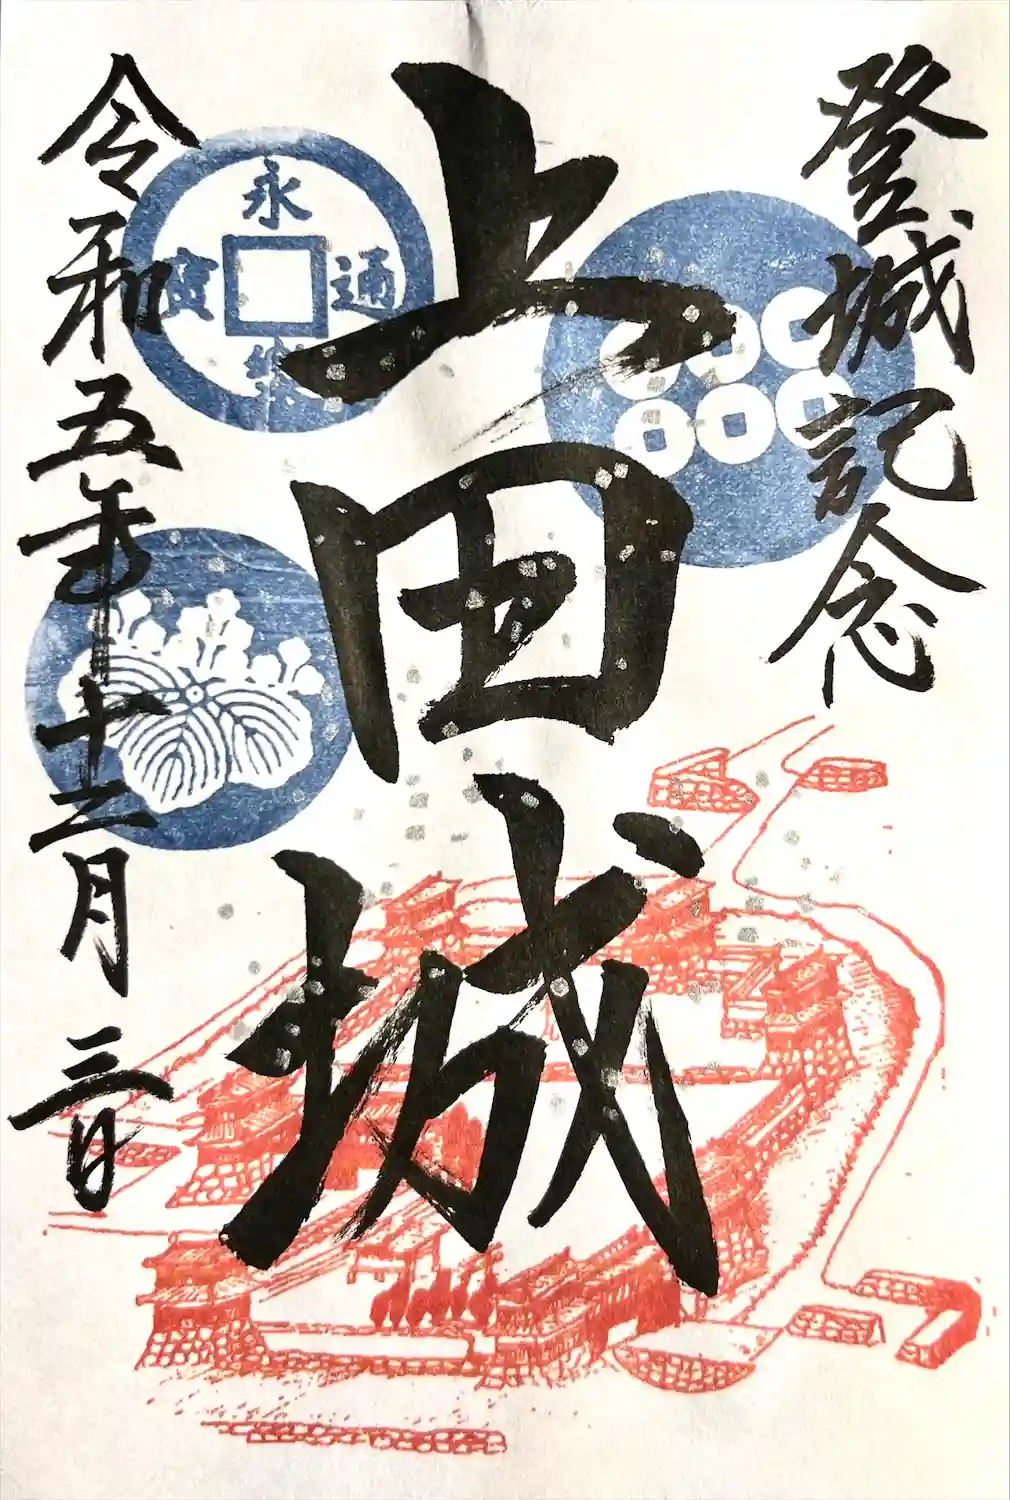 登城記念
上田城
令和五年十二月三日
永樂通寳